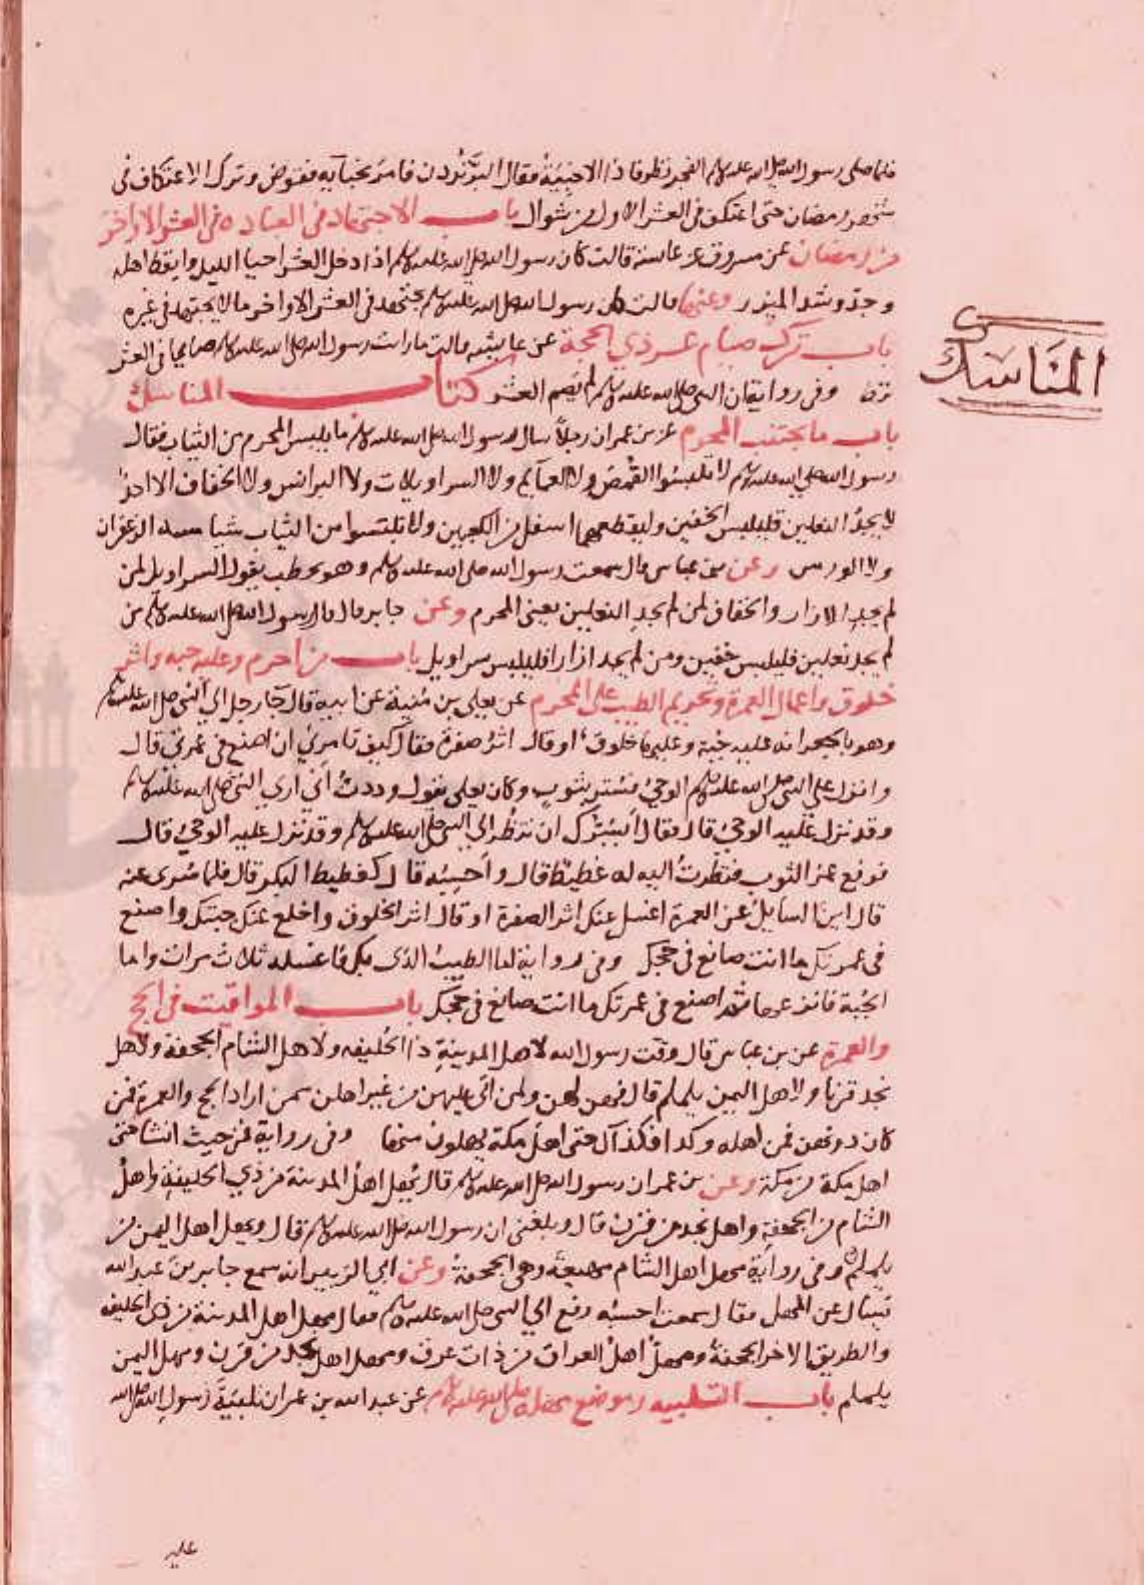 فلما صلى رسول الله صلى الله عليه وسلم الفجر نظر فاذا الاخبية فقال البر تردن فامر بخبآيه فقوض وترك الاعتكاف في
شهر رمضان حتى اعتكف في العشر الاول من شوال باب الاجتهاد في العباده في العشر الاواخر
من رمضان عن مسروق عن عايشة قالت كان رسول الله صلى الله عليه وسلم اذا دخل العشر احيا الليل وايقظ اهله
وجد وشد الميزر وعنها قالت كان رسول الله صلى الله عليه وسلم يجتهد في العشر الاواخر ما لا يجتهد في غيره
باب ترك صيام عشر ذي الحجة عن عايشه قالت ما رايت رسول الله صلى الله عليه وسلم صايما في العشر
قط وفي رواية ان النبي صلى الله عليه وسلم لم يصم العشر كتاب المناسك
المناسك
باب ما يجتنب المحرم عن بن عمر ان رجلا سال رسول الله صلى الله عليه وسلم ما يلبس المحرم من الثياب فقال
رسول الله صلى الله عليه وسلم لا تلبسوا القمص ولا العمايم ولا السراويلات ولا البرانس ولا الخفاف الا احد
لا يجد النعلين فليلبس الخفين وليقطعهما اسفل من الكعبين ولا تلبسوا من الثياب شيا مسه الزعفران
ولا الورس وعن بن عباس قال سمعت رسول الله صلى الله عليه وسلم وهو يخطب يقول السراويل لمن
لم يجد الازار والخفاف لمن لم يجد النعلين يعني المحرم وعن جابر قال قال رسول الله صلى الله عليه وسلم من
لم يجد نعلين فليلبس خفين ومن لم يجد ازارا فليلبس سراويل باب من احرم وعليه جبه واثر
خلوق واعمال العمرة وتحريم الطيب على المحرم عن يعلى بن منية عن ابيه قال جآ رجل الي النبي صلى الله عليه وسلم
وهو بالجعرانه عليه جبة وعليها خلوق او قال اثر صفرة فقال كيف تامرني ان اصنع في عمرتي قال
وانزل على النبي صلى الله عليه وسلم الوحي فستر بثوب وكان يعلى يقول وددت اني اري النبي صلى الله عليه وسلم
وقد نزل عليه الوحي قال فقال ايسرك ان تنظر الي النبي صلى الله عليه وسلم وقد نزل عليه الوحي قال
فرفع عمر الثوب فنظرت اليه له غطيط قال واحسبه قال كغطيط البكر قال فلما سرى عنه
قال اين السايل عن العمرة اغسل عنك اثر الصفرة او قال اثر الخلوق واخلع عنك جبتك واصنع
في عمرتك ما انت صانع في حجك وفي رواية اما الطيب الذى بك فاغسله ثلاث مرات واما
الجبة فانزعها ثم اصنع في عمرتك ما انت صانع في حجك باب المواقيت في الحج
والعمرة عن بن عباس قال وقت رسول الله لاهل المدينة ذا الحليفه ولاهل الشام الجحفة ولاهل
نجد قرنا ولاهل اليمن يلملم قال فهن لهن ولمن اتى عليهن من غير اهلهن ممن اراد الحج والعمرة فمن
كان دونهن فمن اهله وكذا فكذلك حتى اهل مكة يهلون منها وفي رواية فمن حيث انشا حتى
اهل مكة من مكة وعن بن عمر ان رسول الله صلى الله عليه وسلم قال يهل اهل المدينة من ذي الحليفة واهل
الشام من الجحفة واهل نجد من قرن قال وبلغني ان رسول الله صلى الله عليه وسلم قال ويهل اهل اليمن من
يلملم وفي رواية مهل اهل الشام مهيعة وهي الجحفة وعن ابي الزبير انه سمع جابر بن عبد الله
يسال عن المهل فقال سمعت احسبه رفع الي النبي صلى الله عليه وسلم فقال مهل اهل المدينة من ذي الحليفه
والطريق الاخر الجحفة ومهل اهل العراق من ذات عرق ومهل اهل نجد من قرن ومهل اليمن
يلملم باب التلبيه وموضع مهله صلى الله عليه وسلم عن عبد الله بن عمر ان تلبية رسول الله صلى الله
عليه